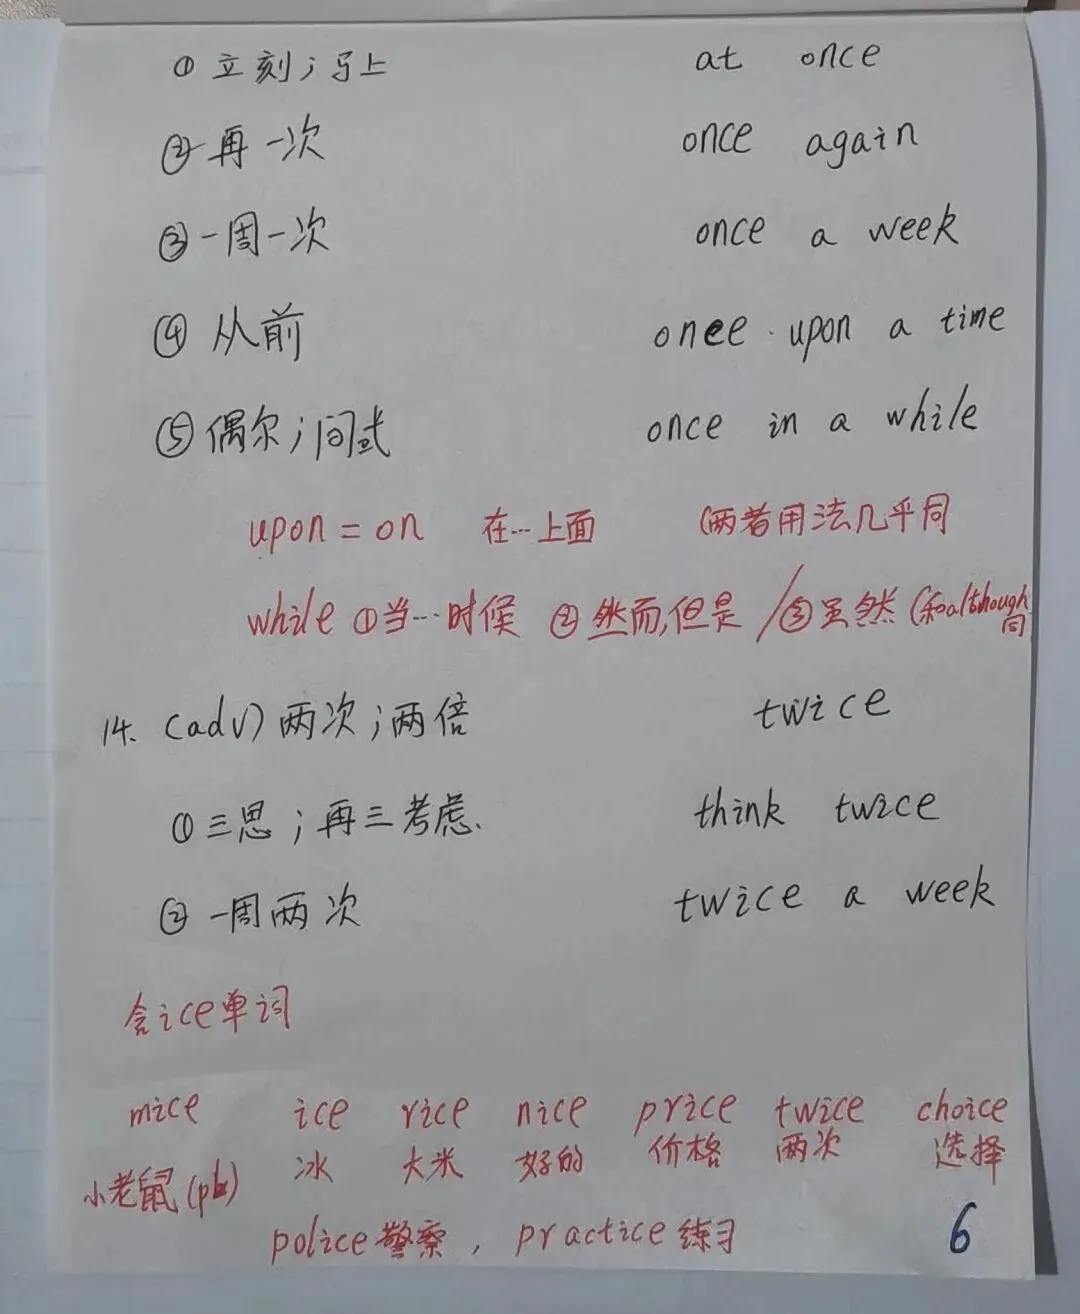 ① 立刻；马上 at once
② 再一次 once again
③ 一周一次 once a week
④ 从前 once upon a time
⑤ 偶尔；间或 once in a while
upon = on 在…上面 (两者用法几乎同
while ①当…时候 ②然而,但是 / ③虽然 (和although同
14. (adv) 两次；两倍 twice
① 三思；再三考虑. think twice
② 一周两次 twice a week
含ice单词
mice ice rice nice price twice choice
小老鼠(pl) 冰 大米 好的 价格 两次 选择
police 警察, practice 练习
6